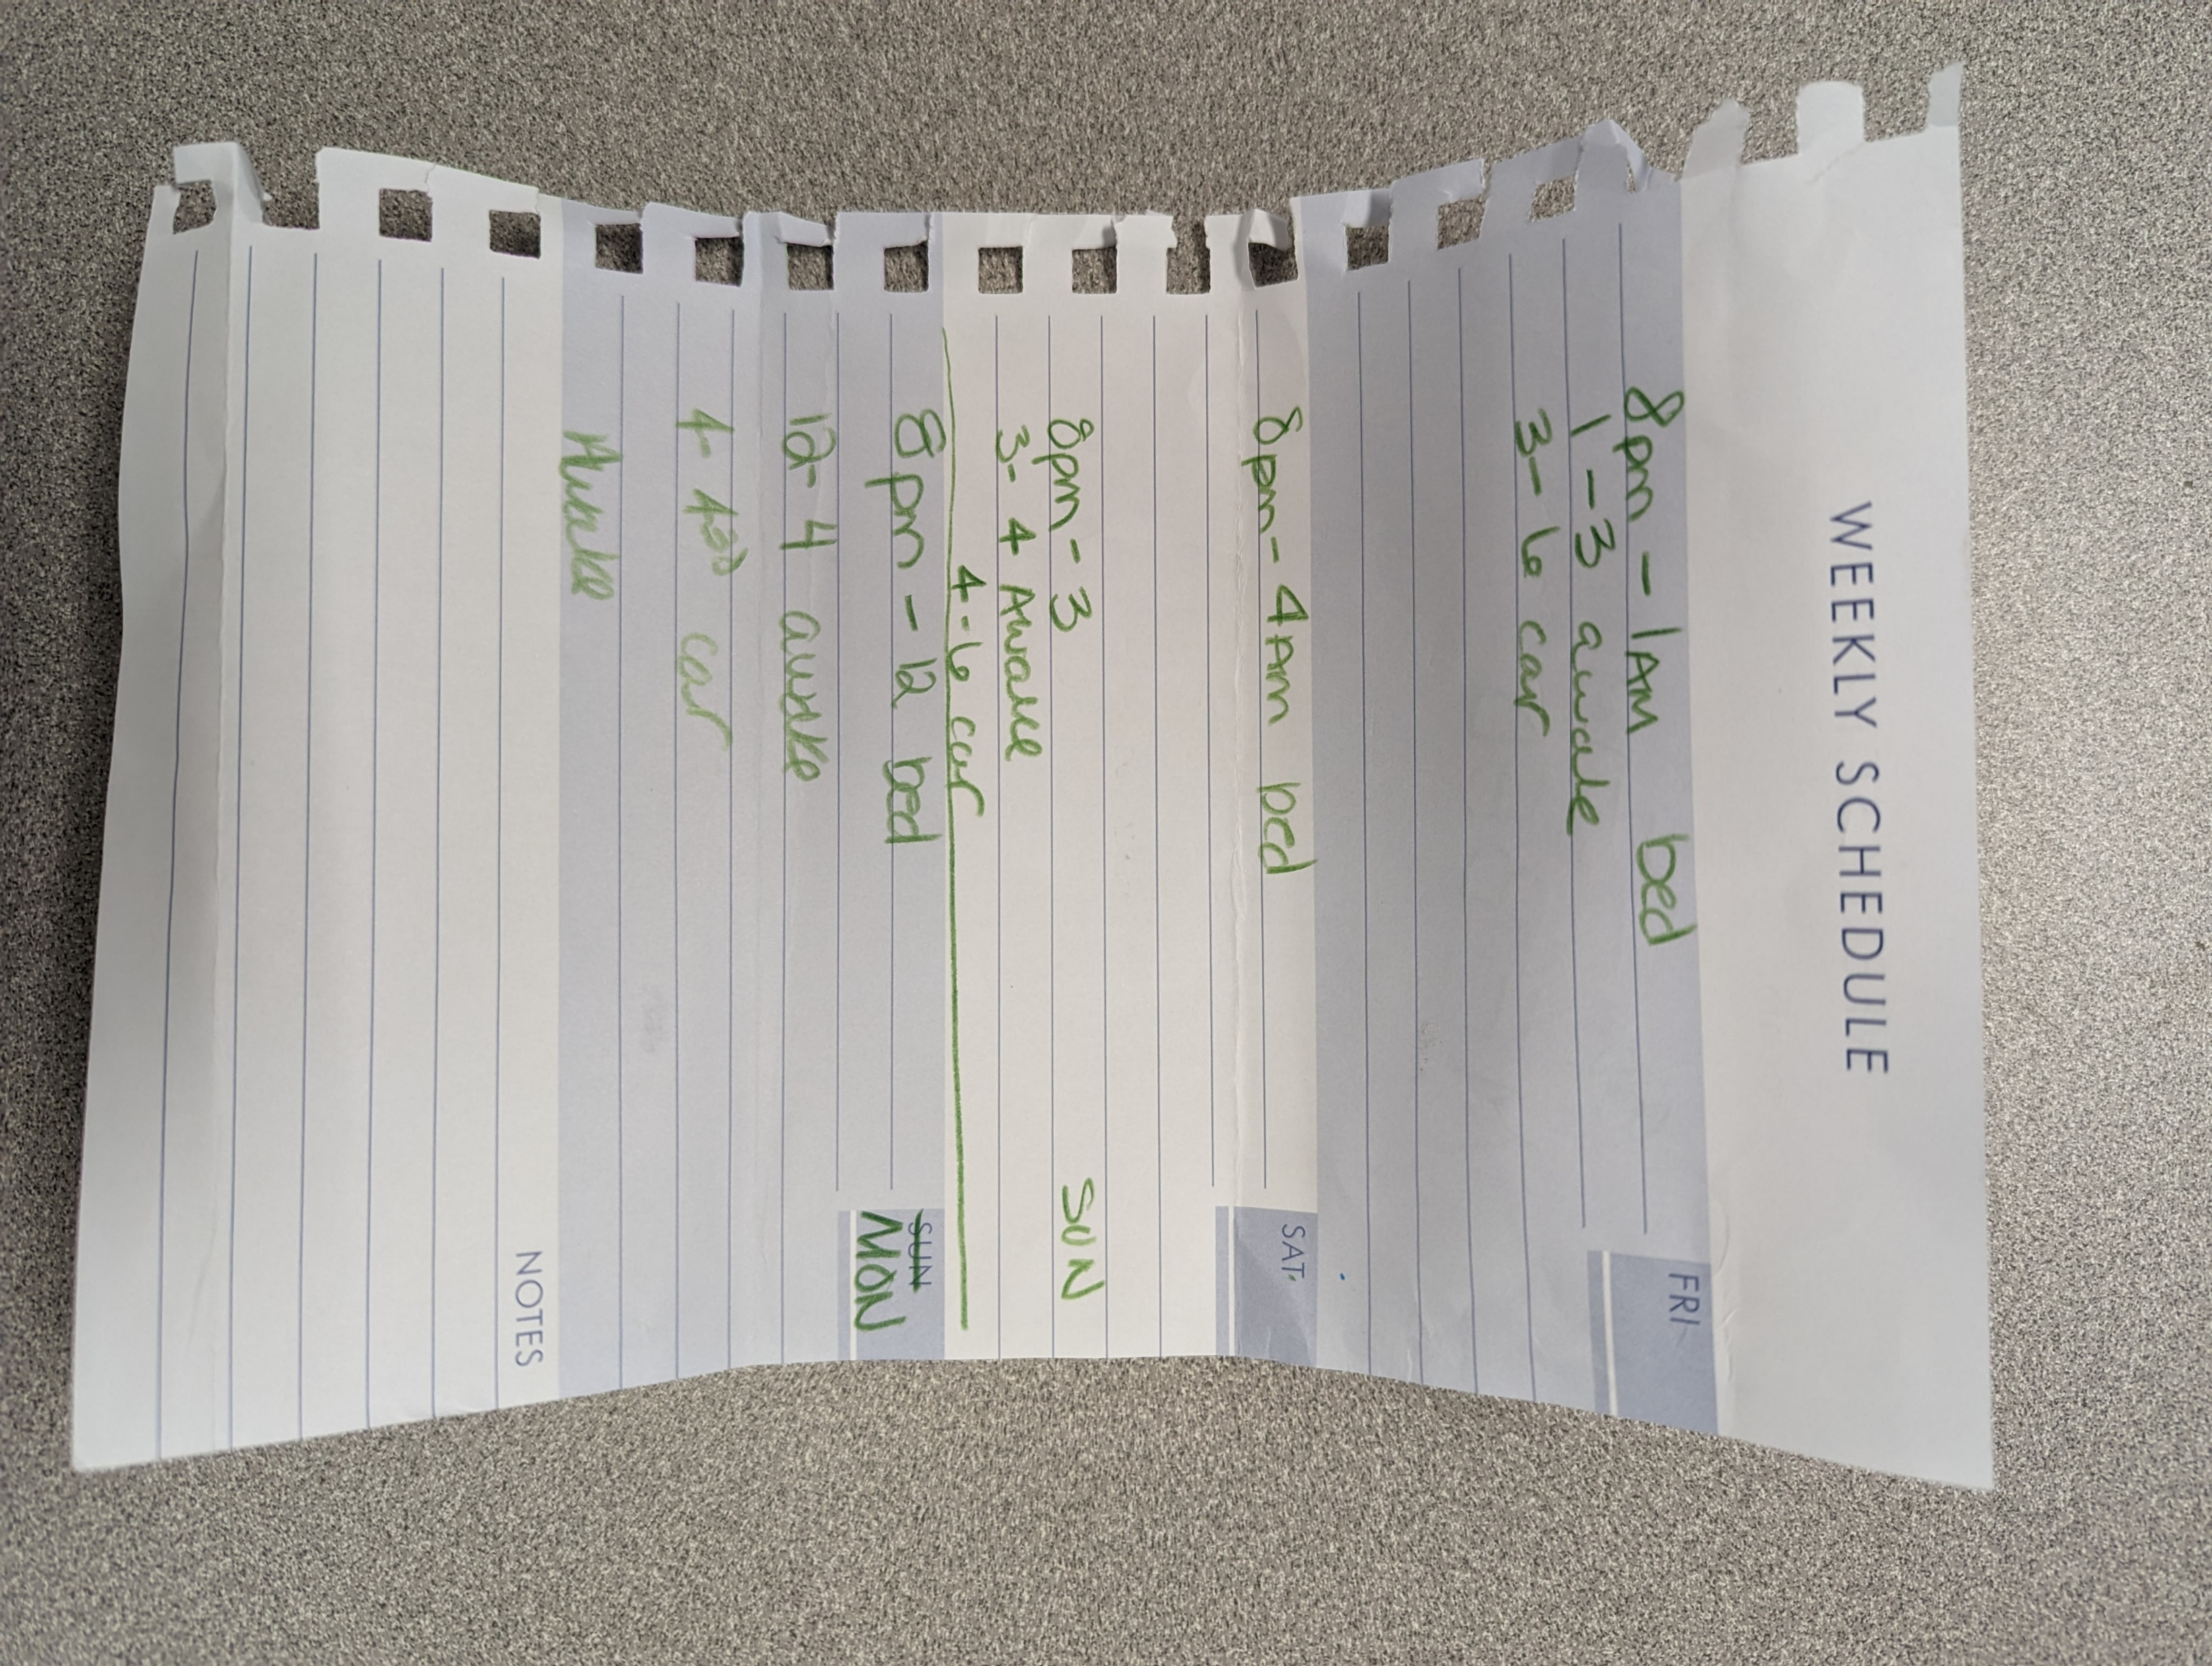 WEEKLY SCHEDULE
FRI
8pm - 1AM bed
1 - 3 awake
3 - 6 car
SAT
8pm - 4AM bed
SUN
8pm - 3
3 - 4 Awake
4 - 6 car
SUN
MON
8pm - 12 bed
12 - 4 awake
4 - 4:30 car
Awake
NOTES